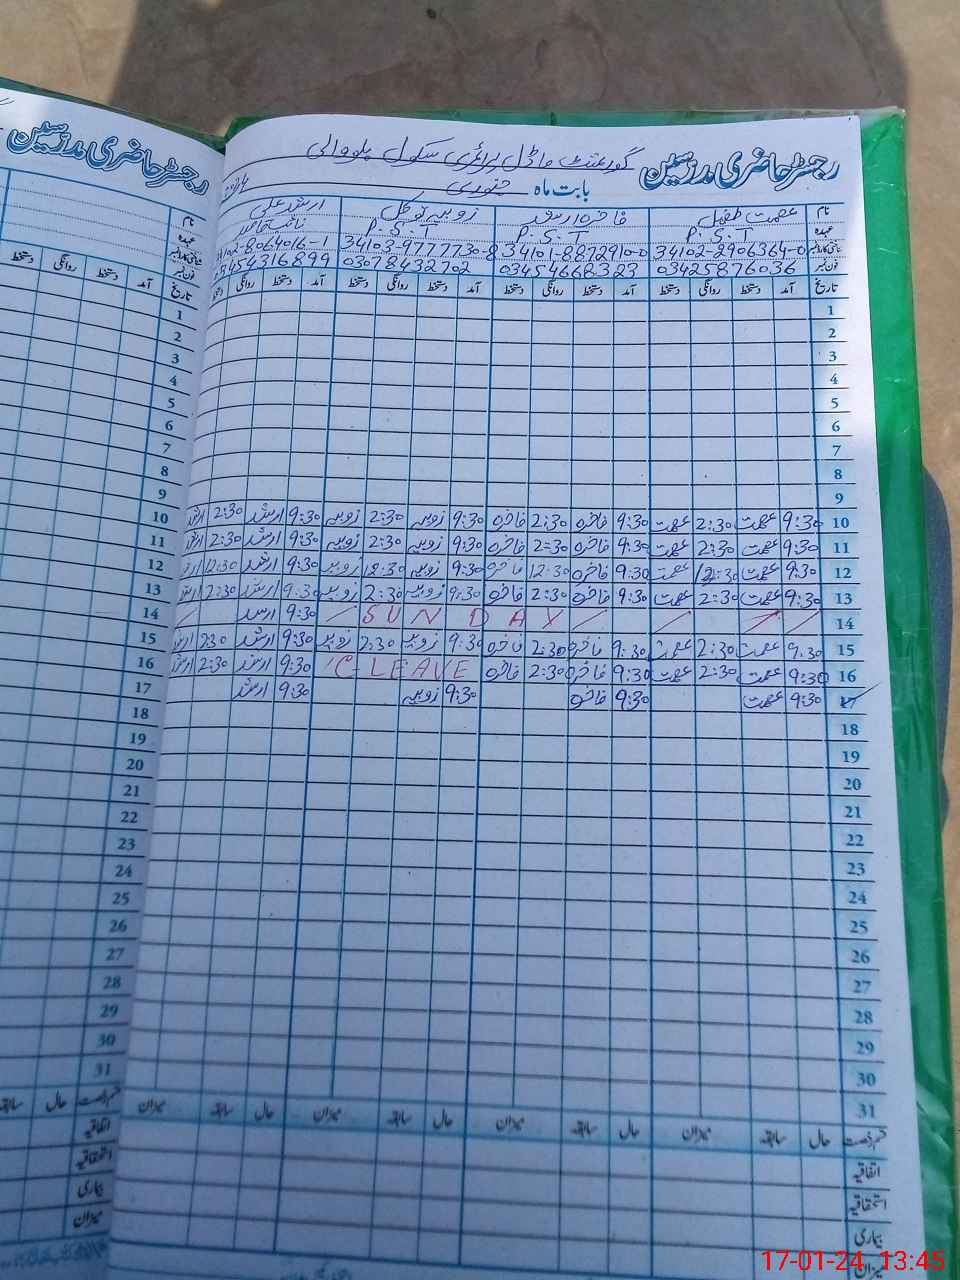 رجسٹر حاضری مدرسین گورنمنٹ ماڈل پرائمری سکول بلووالی
بابت ماہ جنوری
نام عصمت طفیل فاخرہ ارشد زوبیہ توکل ارشد علی
عہدہ P.S.T P.S.T P.S.T
شناختی کارڈ نمبر 34102-2906364-0 34101-8872910-0 34103-9777730-8 34102-8064016-1
فون نمبر 03425876036 03454668323 03078432702 03454316899
تاریخ آمد دستخط روانگی دستخط آمد دستخط روانگی دستخط آمد دستخط روانگی دستخط آمد دستخط روانگی دستخط
1
2
3
4
5
6
7
8
9
10 9:30 عصمت 2:30 عصمت 9:30 فاخرہ 2:30 فاخرہ 9:30 زوبیہ 2:30 زوبیہ 9:30 ارشد 2:30 ارشد
11 9:30 عصمت 2:30 عصمت 9:30 فاخرہ 2:30 فاخرہ 9:30 زوبیہ 2:30 زوبیہ 9:30 ارشد 2:30 ارشد
12 9:30 عصمت 12:30 عصمت 9:30 فاخرہ 12:30 فاخرہ 9:30 زوبیہ 12:30 زوبیہ 9:30 ارشد 12:30 ارشد
13 9:30 عصمت 2:30 عصمت 9:30 فاخرہ 2:30 فاخرہ 9:30 زوبیہ 2:30 زوبیہ 9:30 ارشد 2:30 ارشد
14 SUNDAY 9:30 ارشد
15 9:30 عصمت 2:30 عصمت 9:30 فاخرہ 2:30 فاخرہ 9:30 زوبیہ 2:30 زوبیہ 9:30 ارشد 2:30 ارشد
16 9:30 عصمت 2:30 عصمت 9:30 فاخرہ 2:30 فاخرہ C-LEAVE 9:30 ارشد 2:30 ارشد
17 9:30 عصمت 9:30 فاخرہ 9:30 زوبیہ 9:30 ارشد
18
19
20
21
22
23
24
25
26
27
28
29
30
31
قسم رخصت حال سابقہ میزان حال سابقہ میزان حال سابقہ میزان حال سابقہ میزان
اتفاقیہ
استحقاقیہ
بیماری
میزان
رجسٹر حاضری مدرسین
نام
عہدہ
شناختی کارڈ نمبر
فون نمبر
تاریخ آمد دستخط روانگی دستخط
1
2
3
4
5
6
7
8
9
10
11
12
13
14
15
16
17
18
19
20
21
22
23
24
25
26
27
28
29
30
31
قسم رخصت حال سابقہ
اتفاقیہ
استحقاقیہ
بیماری
میزان
17-01-24, 13:45